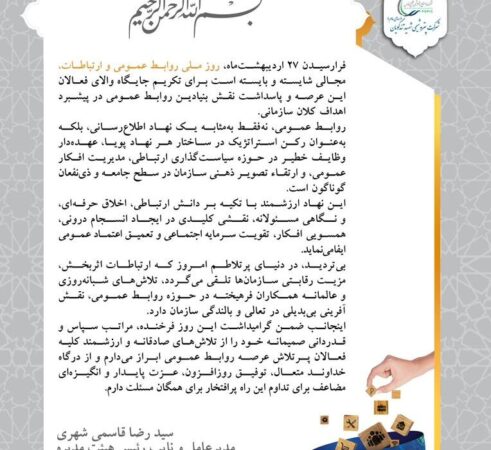 بسم الله الرحمن الرحیم
شرکت پتروشیمی شهید تندگویان
فرارسیدن ۲۷ اردیبهشت‌ماه، روز ملی روابط عمومی و ارتباطات،
مجالی شایسته و بایسته است برای تکریم جایگاه والای فعالان
این عرصه و پاسداشت نقش بنیادین روابط عمومی در پیشبرد
اهداف کلان سازمانی.
روابط عمومی، نه‌فقط به‌مثابه یک نهاد اطلاع‌رسانی، بلکه
به‌عنوان رکن استراتژیک در ساختار هر نهاد پویا، عهده‌دار
وظایف خطیر در حوزه سیاست‌گذاری ارتباطی، مدیریت افکار
عمومی، و ارتقاء تصویر ذهنی سازمان در سطح جامعه و ذی‌نفعان
گوناگون است.
این نهاد ارزشمند با تکیه بر دانش ارتباطی، اخلاق حرفه‌ای،
و نگاهی مسئولانه، نقشی کلیدی در ایجاد انسجام درونی،
همسویی افکار، تقویت سرمایه اجتماعی و تعمیق اعتماد عمومی
ایفامی‌نماید.
بی‌تردید، در دنیای پرتلاطم امروز که ارتباطات اثربخش،
مزیت رقابتی سازمان‌ها تلقی می‌گردد، تلاش‌های شبانه‌روزی
و عالمانه همکاران فرهیخته در حوزه روابط عمومی، نقش
آفرینی بی‌بدیلی در تعالی و بالندگی سازمان دارد.
اینجانب ضمن گرامیداشت این روز فرخنده، مراتب سپاس و
قدردانی صمیمانه خود را از تلاش‌های صادقانه و ارزشمند کلیه
فعالان پرتلاش عرصه روابط عمومی ابراز می‌دارم و از درگاه
خداوند متعال، توفیق روزافزون، عزت پایدار و انگیزه‌ای
مضاعف برای تداوم این راه پرافتخار برای همگان مسئلت دارم.
سید رضا قاسمی شهری
مدیرعامل و نایب رئیس هیئت مدیره